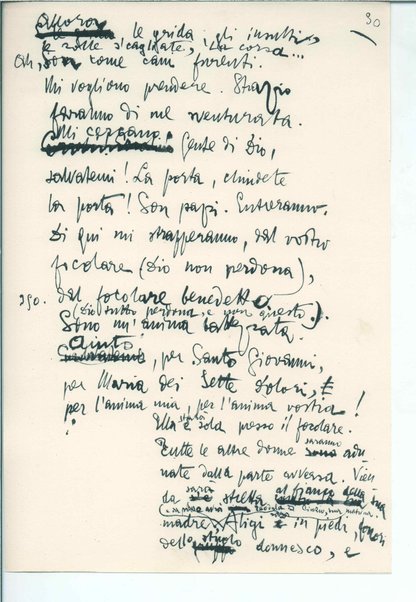 30
le grida, gli insulti,
e sulle scagliate, la corsa...
Oh, son come cani furenti.
Mi vogliono prendere. Strazio
faranno di me sventurata.
Mi cercano. Gente di Dio,
salvatemi! La porta, chiudete
la porta! Son pazzi. Entreranno.
Di qui mi strapperanno, dal vostro
focolare (Dio non perdona),
290. dal focolare benedetto
(Dio tutto perdona e non questo).
Sono un'anima battezzata.
Aiuto, per Santo Giovanni,
per Maria dei Sette dolori,
per l'anima mia, per l'anima vostra!
Ella starà sola presso il focolare.
Tutte le altre donne saranno adu-
nate dalla parte avversa. Vien-
da sarà stretta
madre, Aligi sarà in piedi, fuori
dello stuolo donnesco, e